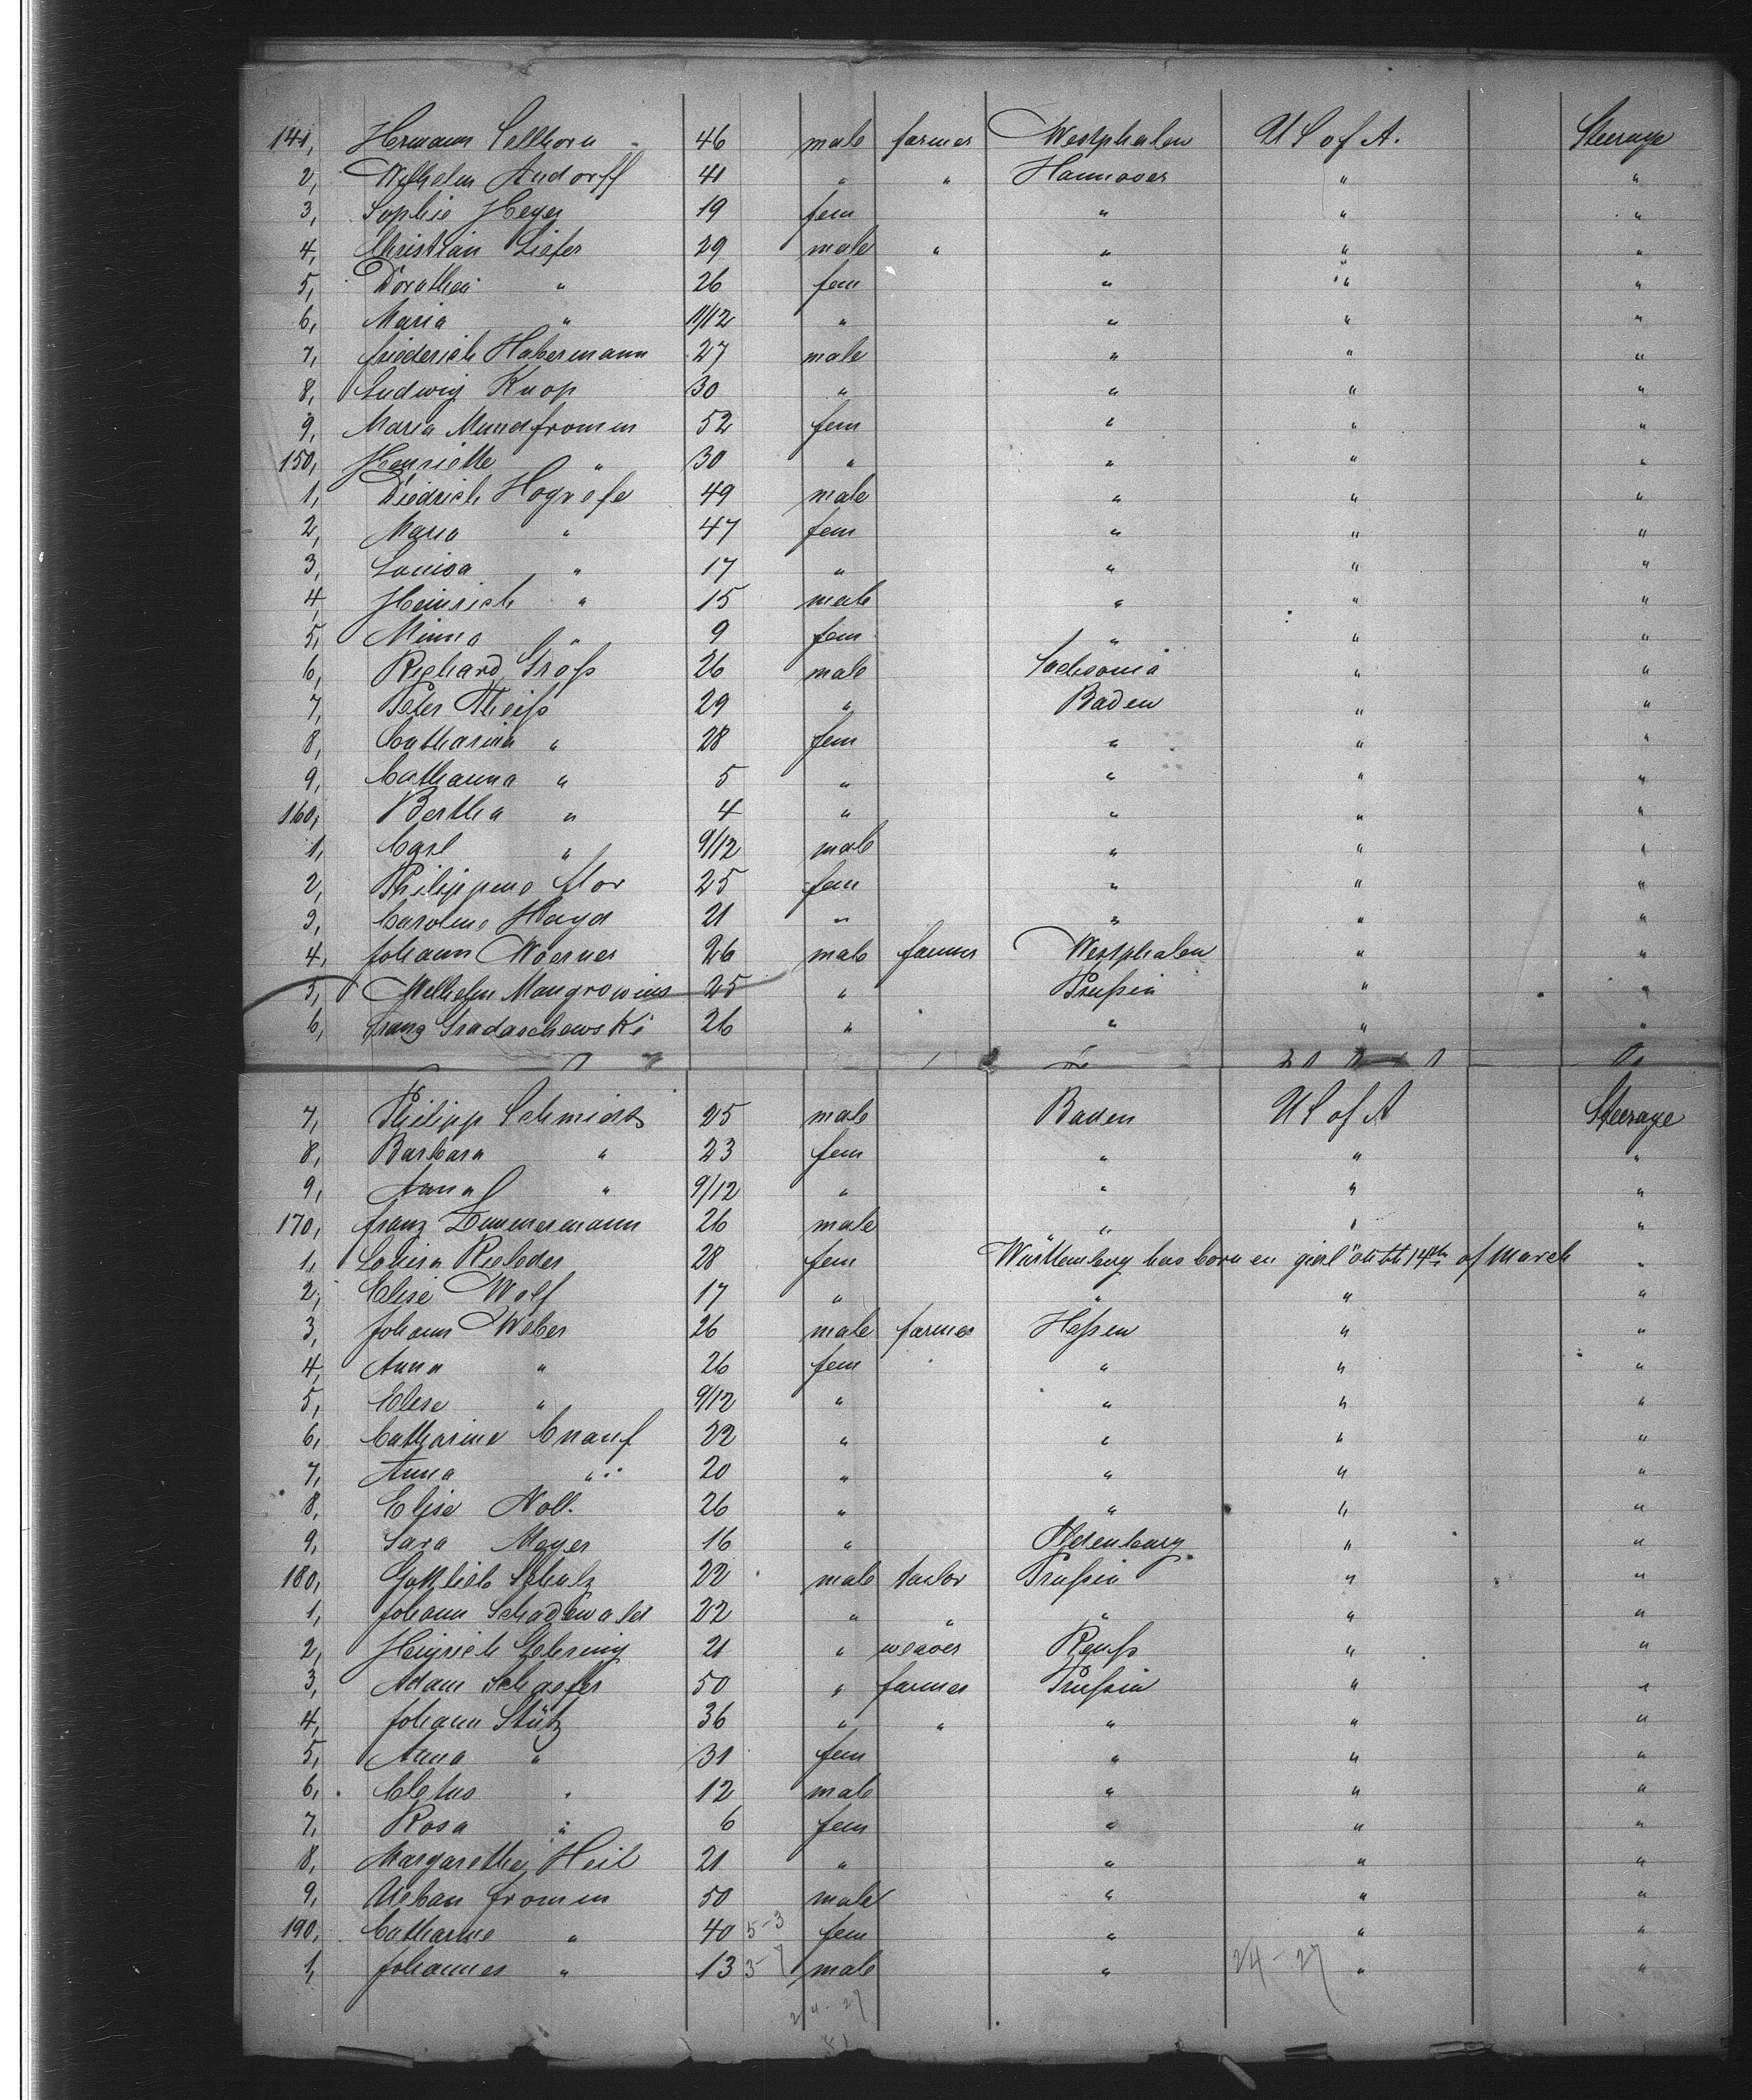 141, Hermann Sellhorn 46 male farmer Westphalen U S of A. Steerage
2, Wilhelm Andorff 41 " " Hannover " "
3, Sophie Heyer 19 fem " " "
4, Christian Liefer 29 male " " " "
5, Dorothea " 26 fem " " "
6, Maria " 11/12 " " " "
7, friederich Habermann 27 male " " "
8, Ludwig Knop 30 " " " "
9, Maria Mundfromm 52 fem " " "
150, Henriette " 30 " " " "
1, Diedrich Hogrefe 49 male " " "
2, Maria " 47 fem " " "
3, Louisa " 17 " " " "
4, Heinrich " 15 male " " "
5, Minna " 9 fem " " "
6, Richard Groß 26 male Sachsonia " "
7, Peter Theiß 29 " Baden " "
8, Catharina " 28 fem " " "
9, Catharina " 5 " " " "
160, Bertha " 4 " " " "
1, Carl " 9/12 male " " "
2, Philippine flor 25 fem " " "
3, Caroline Hayd 21 " " " "
4, Johann Woerner 26 male farmer Westphalen " "
5, Wilhelm Mangrowius 25 " Prußia " "
6, franz Gradaschewski 26 " " " "
7, Philipp Schmidt 25 male Baden U S of A Steerage
8, Barbara " 23 fem " " "
9, Anna " 9/12 " " " "
170, franz Zimmermann 26 male " " "
1, Louisa Rieleder 28 fem Württemberg has born en girl on the 14th of March "
2, Elise Wolf 17 " " " "
3, Johann Weber 26 male farmer Heßen " "
4, Anna " 26 fem " " "
5, Elise " 9/12 " " " "
6, Catharine Cnauf 22 " " " "
7, Anna " 20 " " " "
8, Elise Noll. 26 " " " "
9, Sara Meyer 16 " Oldenburg " "
180, Gottlieb Schulz 22 male tailor Prußia " "
1, Johann Schadewald 22 " " " " "
2, Heinrich Gehring 21 " weaver Reuß " "
3, Adam Schaefer 50 " farmer Prußia " "
4, Johann Stütz 36 " " " " "
5, Anna " 31 fem " " "
6, Cletus " 12 male " " "
7, Rosa " 6 fem " " "
8, Margaretha Heil 21 " " " "
9, Urban fromm 50 male " " "
190, Catharine " 40 5-3 fem " " "
1, Johannes " 13 3-7 male " 24-27 " "
24-27